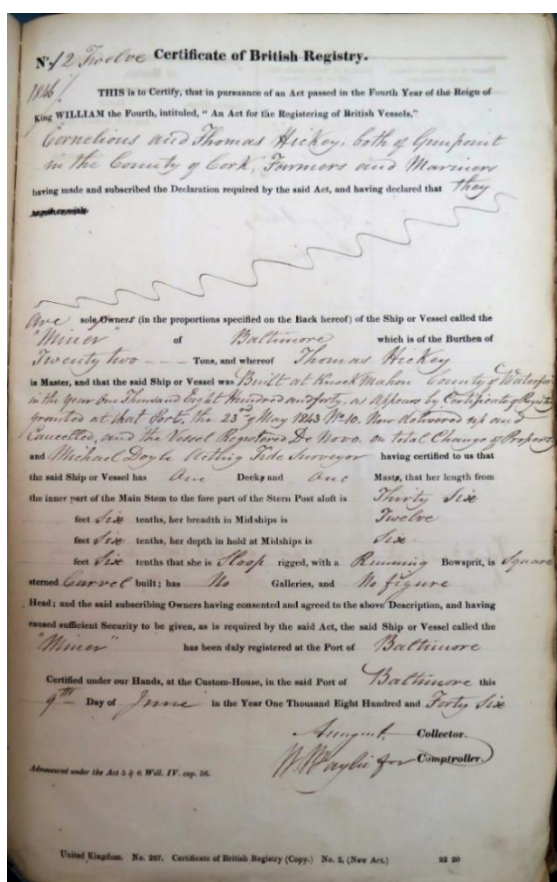 No. 12 Twelve Certificate of British Registry.
1846/
THIS is to Certify, that in pursuance of an Act passed in the Fourth Year of the Reign of
King WILLIAM the Fourth, intituled, "An Act for the Registering of British Vessels,"
Cornelious and Thomas Hickey, both of Gunpoint
in the County of Cork, Farmers and Mariners
having made and subscribed the Declaration required by the said Act, and having declared that they
are sole Owners (in the proportions specified on the Back hereof) of the Ship or Vessel called the
"Miner" of Baltimore which is of the Burthen of
Twenty two Tons, and whereof Thomas Hickey
is Master, and that the said Ship or Vessel was Built at Knock Mahon County of
in the year One Thousand Eight Hundred and forty, as appears by Certificate of
granted at that Port, the 23rd of May 1843 No. 10. Now delivered up and
Cancelled, and the Vessel Registered De Novo. on Total Change of
and Michael Doyle Acting Tide Surveyor having certified to us that
the said Ship or Vessel has One Decks and One Masts, that her length from
the inner part of the Main Stem to the fore part of the Stern Post aloft is Thirty Six
feet Six tenths, her breadth in Midships is Twelve
feet Six tenths, her depth in hold at Midships is Six
feet Six tenths that she is Sloop rigged, with a Running Bowsprit, is Square
sterned Carvel built; has No Galleries, and No figure
Head; and the said subscribing Owners having consented and agreed to the above Description, and having
caused sufficient Security to be given, as is required by the said Act, the said Ship or Vessel called the
"Miner" has been duly registered at the Port of Baltimore
Certified under our Hands, at the Custom-House, in the said Port of Baltimore this
9th Day of June in the Year One Thousand Eight Hundred and Forty Six
Collector.
for Comptroller.
Admeasured under the Act 5 & 6 Will. IV. cap. 56.
United Kingdom. No. 267. Certificate of British Registry (Copy.) No. 2, (New Act.) 22 20